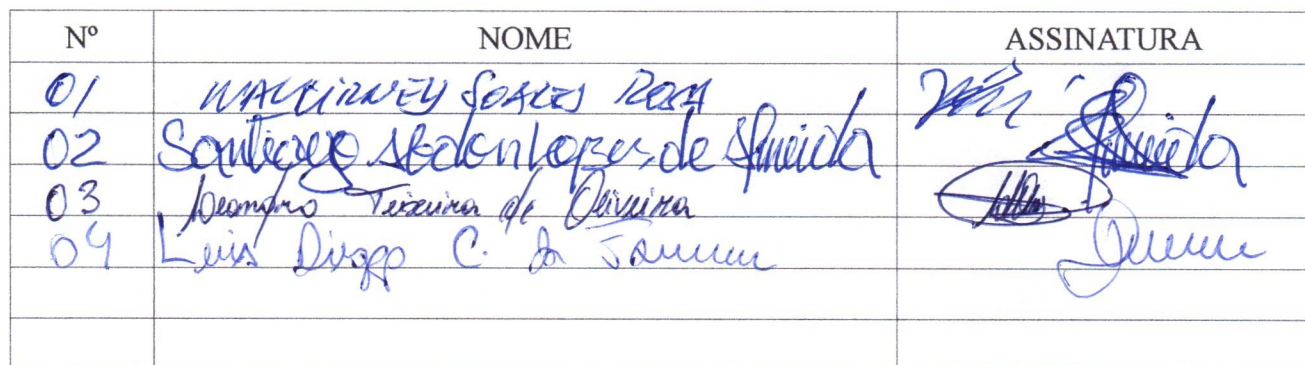 Nº NOME ASSINATURA
01 SOARES ROSA
02 Santiago Abdon Lopes de Almeida Almeida
03 Leandro Teixeira de Oliveira
04 Luis Diogo C. da